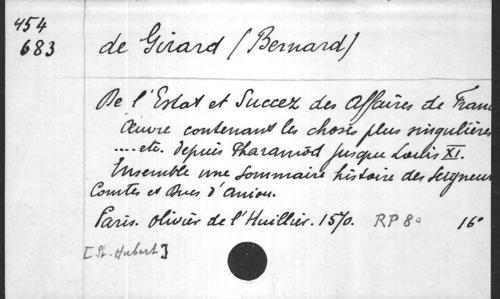 454
683
de Girard (Bernard)
De l'Estat et Succez des Affaires de Franc
Œuvre contenant les choses plus singulières
.... etc. depuis Pharamōd jusque Louis XI.
Ensemble une Sommaire histoire des Seigneur
Comtes et Ducs d'Aniou.
Paris. Olivier de l'Huillier. 1570. RP 80 16°
[St. Hubert]